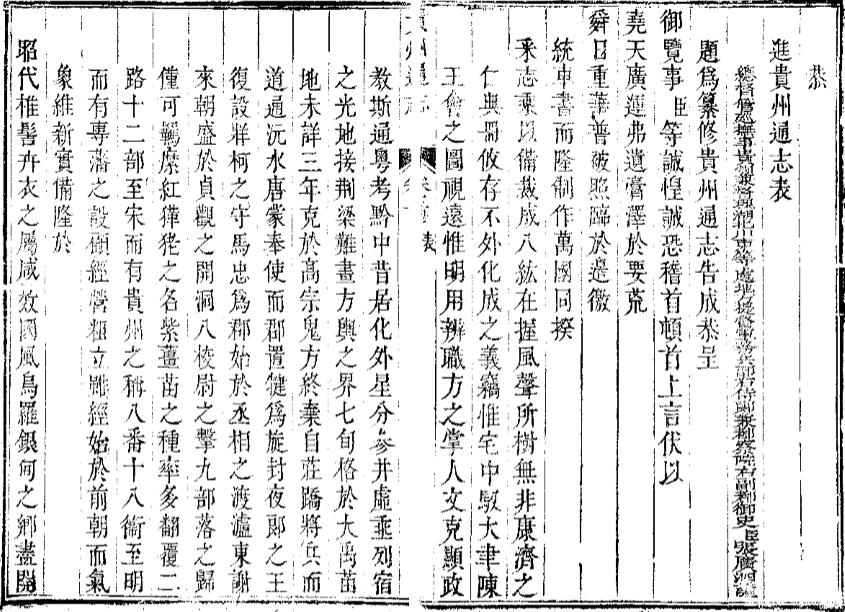 恭
進貴州通志表
總督雲南兵部右侍郎兼都察院右副都御史臣張廣泗
題為纂修貴州通志告成恭呈
御覽事臣等誠惶誠恐稽首頓首上言伏以
堯天廣運弗遺膏澤於要荒
舜日重華普被照臨於邊徼
統車書而隆制作萬國同揆
采志乘以備裁成八紘在握風聲所樹無非康濟之
仁輿圖攸存不外化成之義竊惟宅中敷大聿陳
王會之圖視遠惟明用辨職方之掌人文克顯政
教斯通粵考黔中昔居化外星分參井虛垂列宿
之光地接荆梁難畫方輿之界七旬格於大禹苗
地未詳三年克於高宗鬼方終棄自莊蹻將兵而
道通沅水唐蒙奉使而郡置犍為旋封夜郎之王
復設牂柯之守馬忠為郡始於丞相之渡瀘東謝
來朝盛於貞觀之開洞八棱尉之擊九部落之歸
僅可羈縻紅犵狫之名紫薑苗之種率多翻覆二
路十二部至宋而有貴州之稱八番十八衛至明
而有專藩之設顧經營粗立雖經始於前朝而氣
象維新實備隆於
昭代椎髻卉衣之屬咸效國風烏羅銀何之鄉盡開